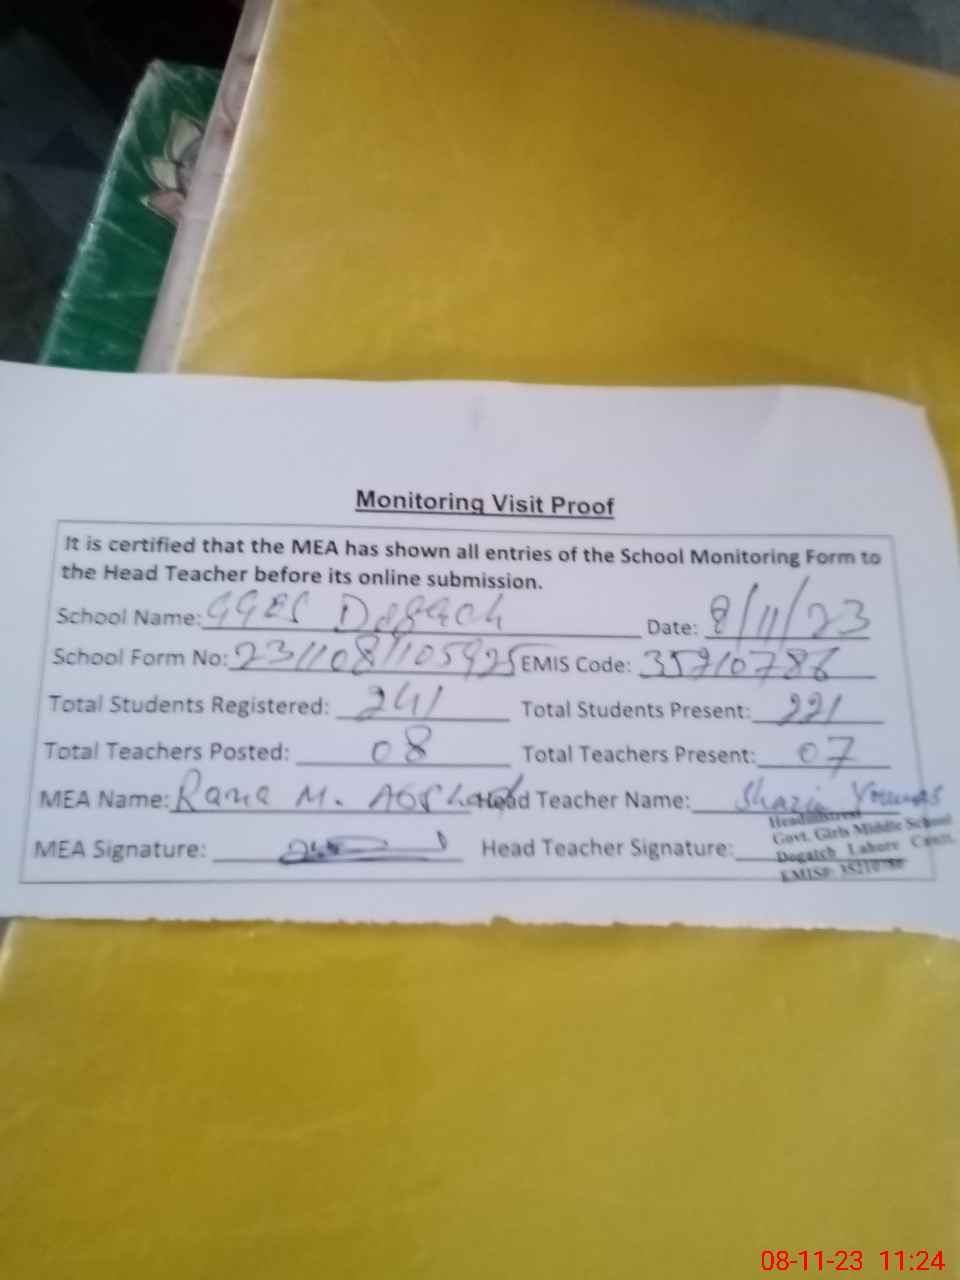 Monitoring Visit Proof
It is certified that the MEA has shown all entries of the School Monitoring Form to
the Head Teacher before its online submission.
School Name: GGES Dogach Date: 8/11/23
School Form No: 2311081105925 EMIS Code: 35210786
Total Students Registered: 241 Total Students Present: 221
Total Teachers Posted: 08 Total Teachers Present: 07
MEA Name: Rana M. Head Teacher Name: Shazia Younas
Headmistress
Govt. Girls Middle School
MEA Signature: Head Teacher Signature:
Dogatch Lahore Cantt.
EMIS#: 35210786
08-11-23 11:24